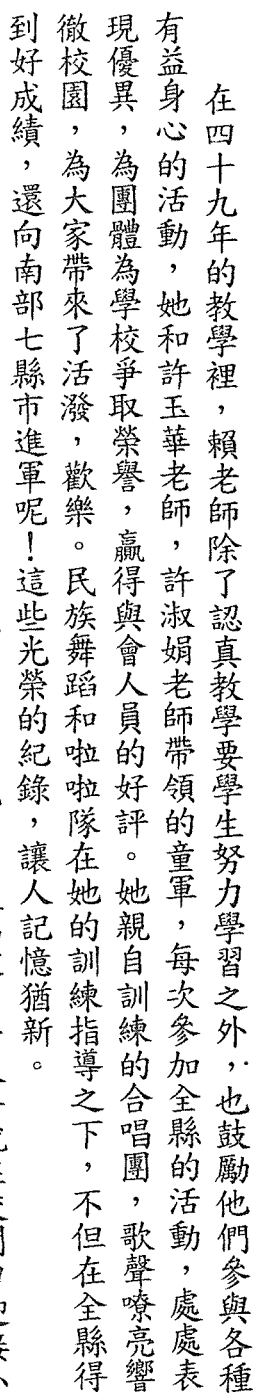 在四十九年的教學裡，賴老師除了認真教學要學生努力學習之外，也鼓勵他們參與各種
有益身心的活動，她和許玉華老師，許淑娟老師帶領的童軍，每次參加全縣的活動，處處表
現優異，為團體為學校爭取榮譽，贏得與會人員的好評。她親自訓練的合唱團，歌聲嘹亮響
徹校園，為大家帶來了活潑，歡樂。民族舞蹈和啦啦隊在她的訓練指導之下，不但在全縣得
到好成績，還向南部七縣市進軍呢！這些光榮的紀錄，讓人記憶猶新。